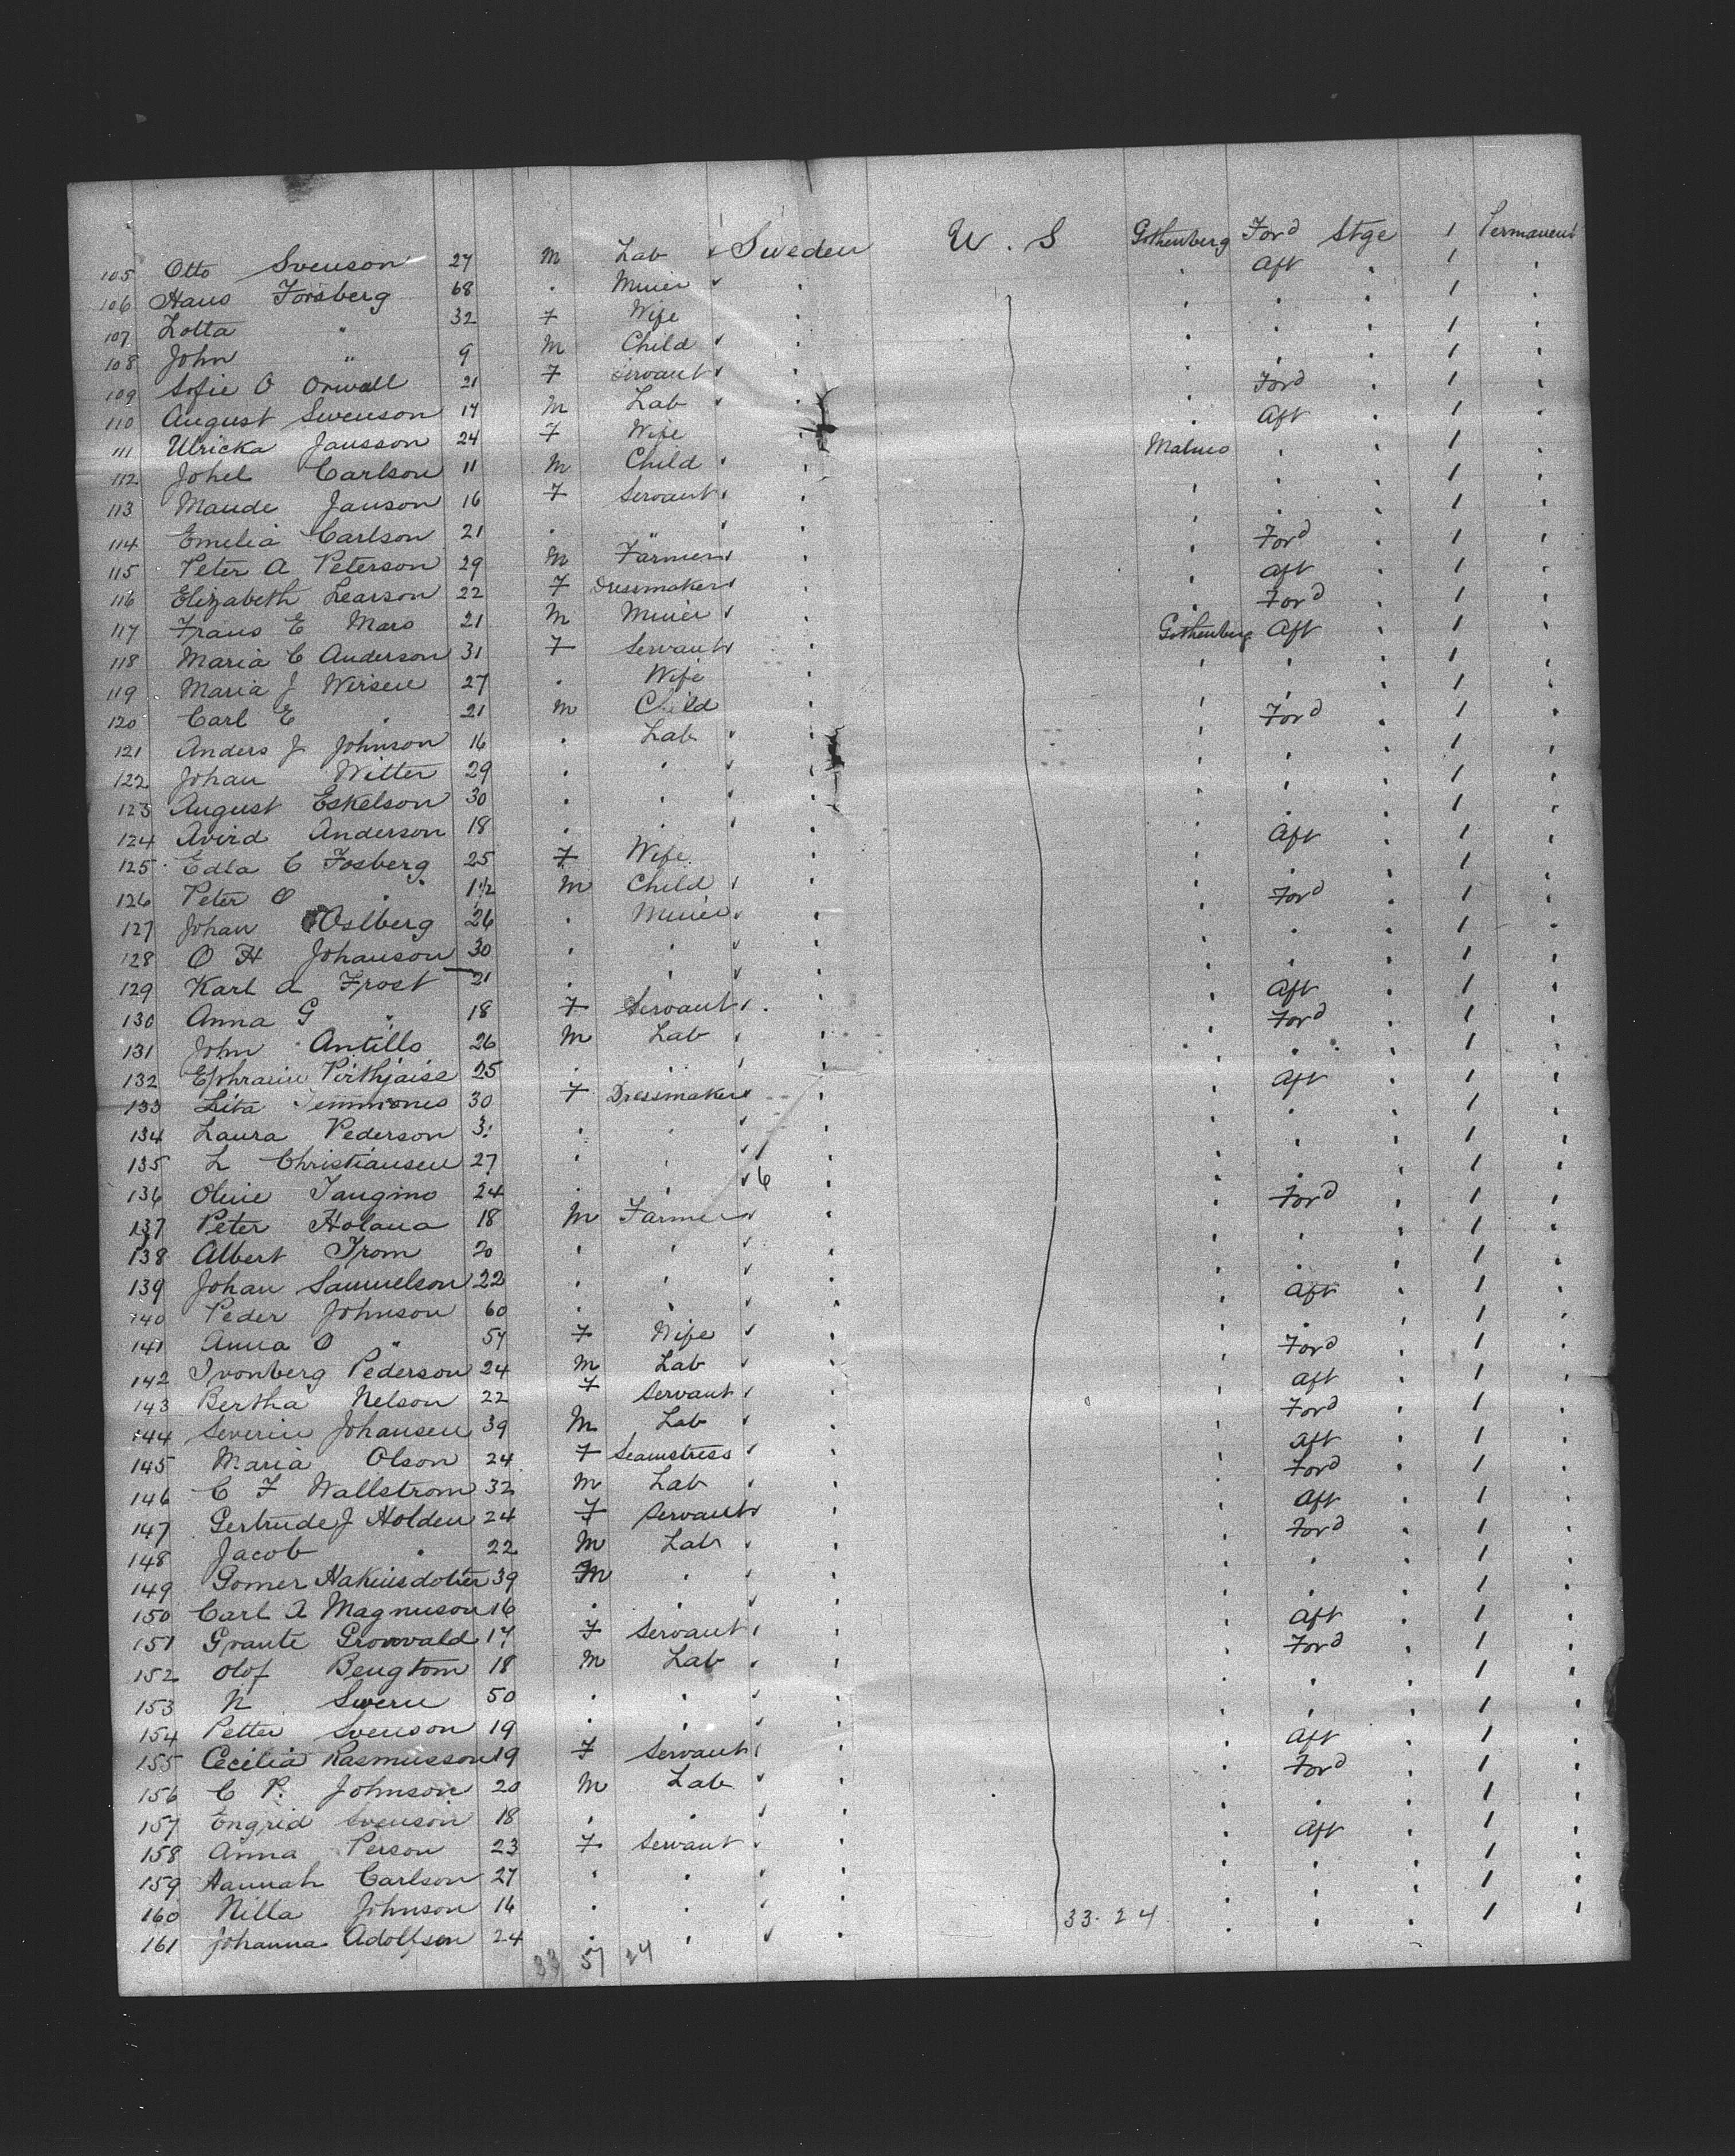 105 Otto Svenson 27 M Lab Sweden U.S Gothenberg Ford Stge 1 Permanent
106 Hans Forsberg 68 " Miner " " Aft " 1 "
107 Lotta " 32 F Wife " " " " 1 "
108 John " 9 M Child " " " " 1 "
109 Sofie O Orwall 21 F Servant " " " " 1 "
110 August Swenson 17 M Lab " " Ford " 1 "
111 Ulricka Jansson 24 F Wife " " Aft " 1 "
112 Johel Carlson 11 M Child " Malmo " " 1 "
113 Maude Janson 16 F Servant " " " " 1 "
114 Emelia Carlson 21 " " " " " " 1 "
115 Peter A Peterson 29 M Farmer " " Ford " 1 "
116 Elizabeth Learson 22 F Dressmaker " " Aft " 1 "
117 Frans E Mars 21 M Miner " " Ford " 1 "
118 Maria C Anderson 31 F Servant " Gothenberg Aft " 1 "
119 Maria J Wersen 27 " Wife " " " " 1 "
120 Carl E " 21 M Child " " " " 1 "
121 Anders J Johnson 16 " Lab " " Ford " 1 "
122 Johan Witter 29 " " " " " " 1 "
123 August Eskelson 30 " " " " " " 1 "
124 Avird Anderson 18 " " " " " " 1 "
125 Edla C Fosberg 25 F Wife " " Aft " 1 "
126 Peter O " 1 1/2 M Child " " " " 1 "
127 Johan Oslberg 26 " Miner " " Ford " 1 "
128 O H Johanson 30 " " " " " " 1 "
129 Karl A Frost 21 " " " " " " 1 "
130 Anna G " 18 F Servant " " Aft " 1 "
131 John Antillo 26 M Lab " " Ford " 1 "
132 Ephraim Pirthjaise 25 " " " " " " 1 "
133 Lita 30 F Dressmaker " " Aft " 1 "
134 Laura Pederson 31 " " " " " " 1 "
135 L Christiansen 27 " " " " " " 1 "
136 Oline Tangmo 24 " " 6 " " " " 1 "
137 Peter Holana 18 M Farmer " " Ford " 1 "
138 Albert From 20 " " " " " " 1 "
139 Johan Samuelson 22 " " " " " " 1 "
140 Peder Johnson 60 " " " " Aft " 1 "
141 Anna O " 57 F Wife " " " " 1 "
142 Ivonberg Pederson 24 M Lab " " Ford " 1 "
143 Bertha Nelson 22 F Servant " " Aft " 1 "
144 Severin Johansen 39 M Lab " " Ford " 1 "
145 Maria Olson 24 F Seamstress " " Aft " 1 "
146 C F Wallstrom 32 M Lab " " Ford " 1 "
147 Gertrude J Holden 24 F Servant " " Aft " 1 "
148 Jacob " 22 M Lab " " Ford " 1 "
149 Gomer Hakinsdotter 39 M " " " " " 1 "
150 Carl A Magnuson 16 " " " " " " 1 "
151 Grante Gronvald 17 F Servant " " Aft " 1 "
152 Olof Bengtom 18 M Lab " " Ford " 1 "
153 N Swern 50 " " " " " " 1 "
154 Petter Svenson 19 " " " " " " 1 "
155 Cecilia Rasmusson 19 F Servant " " Aft " 1 "
156 C P. Johnson 20 M Lab " " Ford " 1 "
157 Engrid Svenson 18 " " " " " " 1 "
158 Anna Person 23 F Servant " " Aft " 1 "
159 Hannah Carlson 27 " " " " " " 1 "
160 Nilla Johnson 16 " " " " " " 1 "
161 Johanna Adolfsen 24 " " " 33.24 " " " 1 "
33 57 24